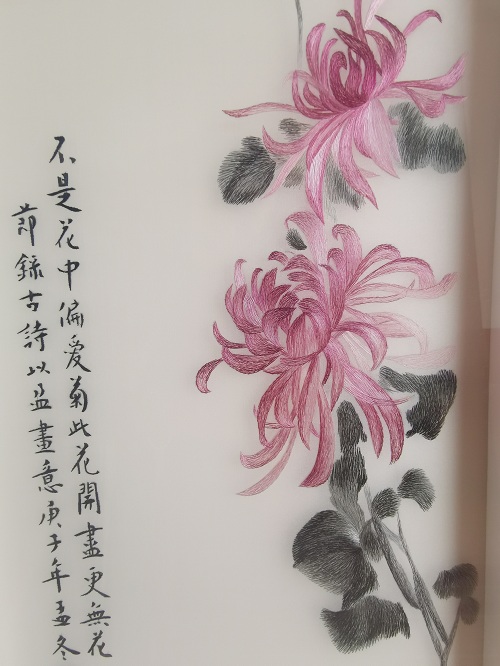 不是花中偏愛菊此花開盡更無花
節錄古詩以盈畫意庚子年孟冬